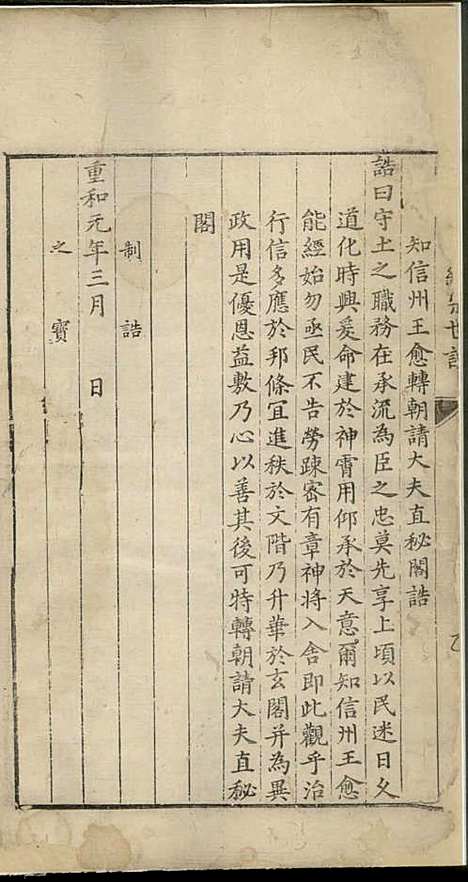 知信州王愈轉朝請大夫直秘閣誥
誥曰守土之職務在承流為臣之忠莫先享上頃以民迷日久
道化時興爰命建於神霄用仰承於天意爾知信州王愈
能經始勿亟民不告勞踈密有章神將入舍即此觀乎治
行信多應於邦條宜進秩於文階乃升華於玄閣并為異
政用是優恩益敷乃心以善其後可特轉朝請大夫直秘
閣
制誥
重和元年三月 日
之寶